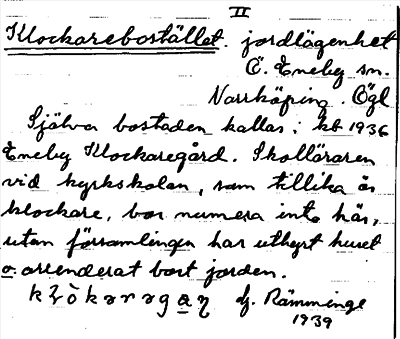 II
Klockarebostället. jordlägenhet
Ö. Eneby sn.
Norrköping. Ögl
Själva bostaden kallas i kb 1936
Eneby Klockaregård. Skolläraren
vid kyrkskolan, som tillika är
klockare, bor numera inte här,
utan församlingen har uthyrt huset
o. arrenderat bort jorden.
Hj. Rämminge
1939